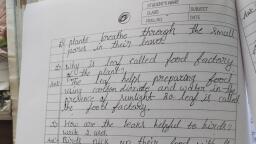 STUDENT'S NAME
CLASS SUBJECT
ROLL NO. DATE
plants breathe through the small
pores in their leaves.
Why is leaf called food factory
of the plant?
The leaf helps preparing food
using carbon dioxide and water in the
presence of sunlight so leaf is called
the food factory.
How are the beaks helpful to birds?
write 2 uses.
Birds pick up their food with